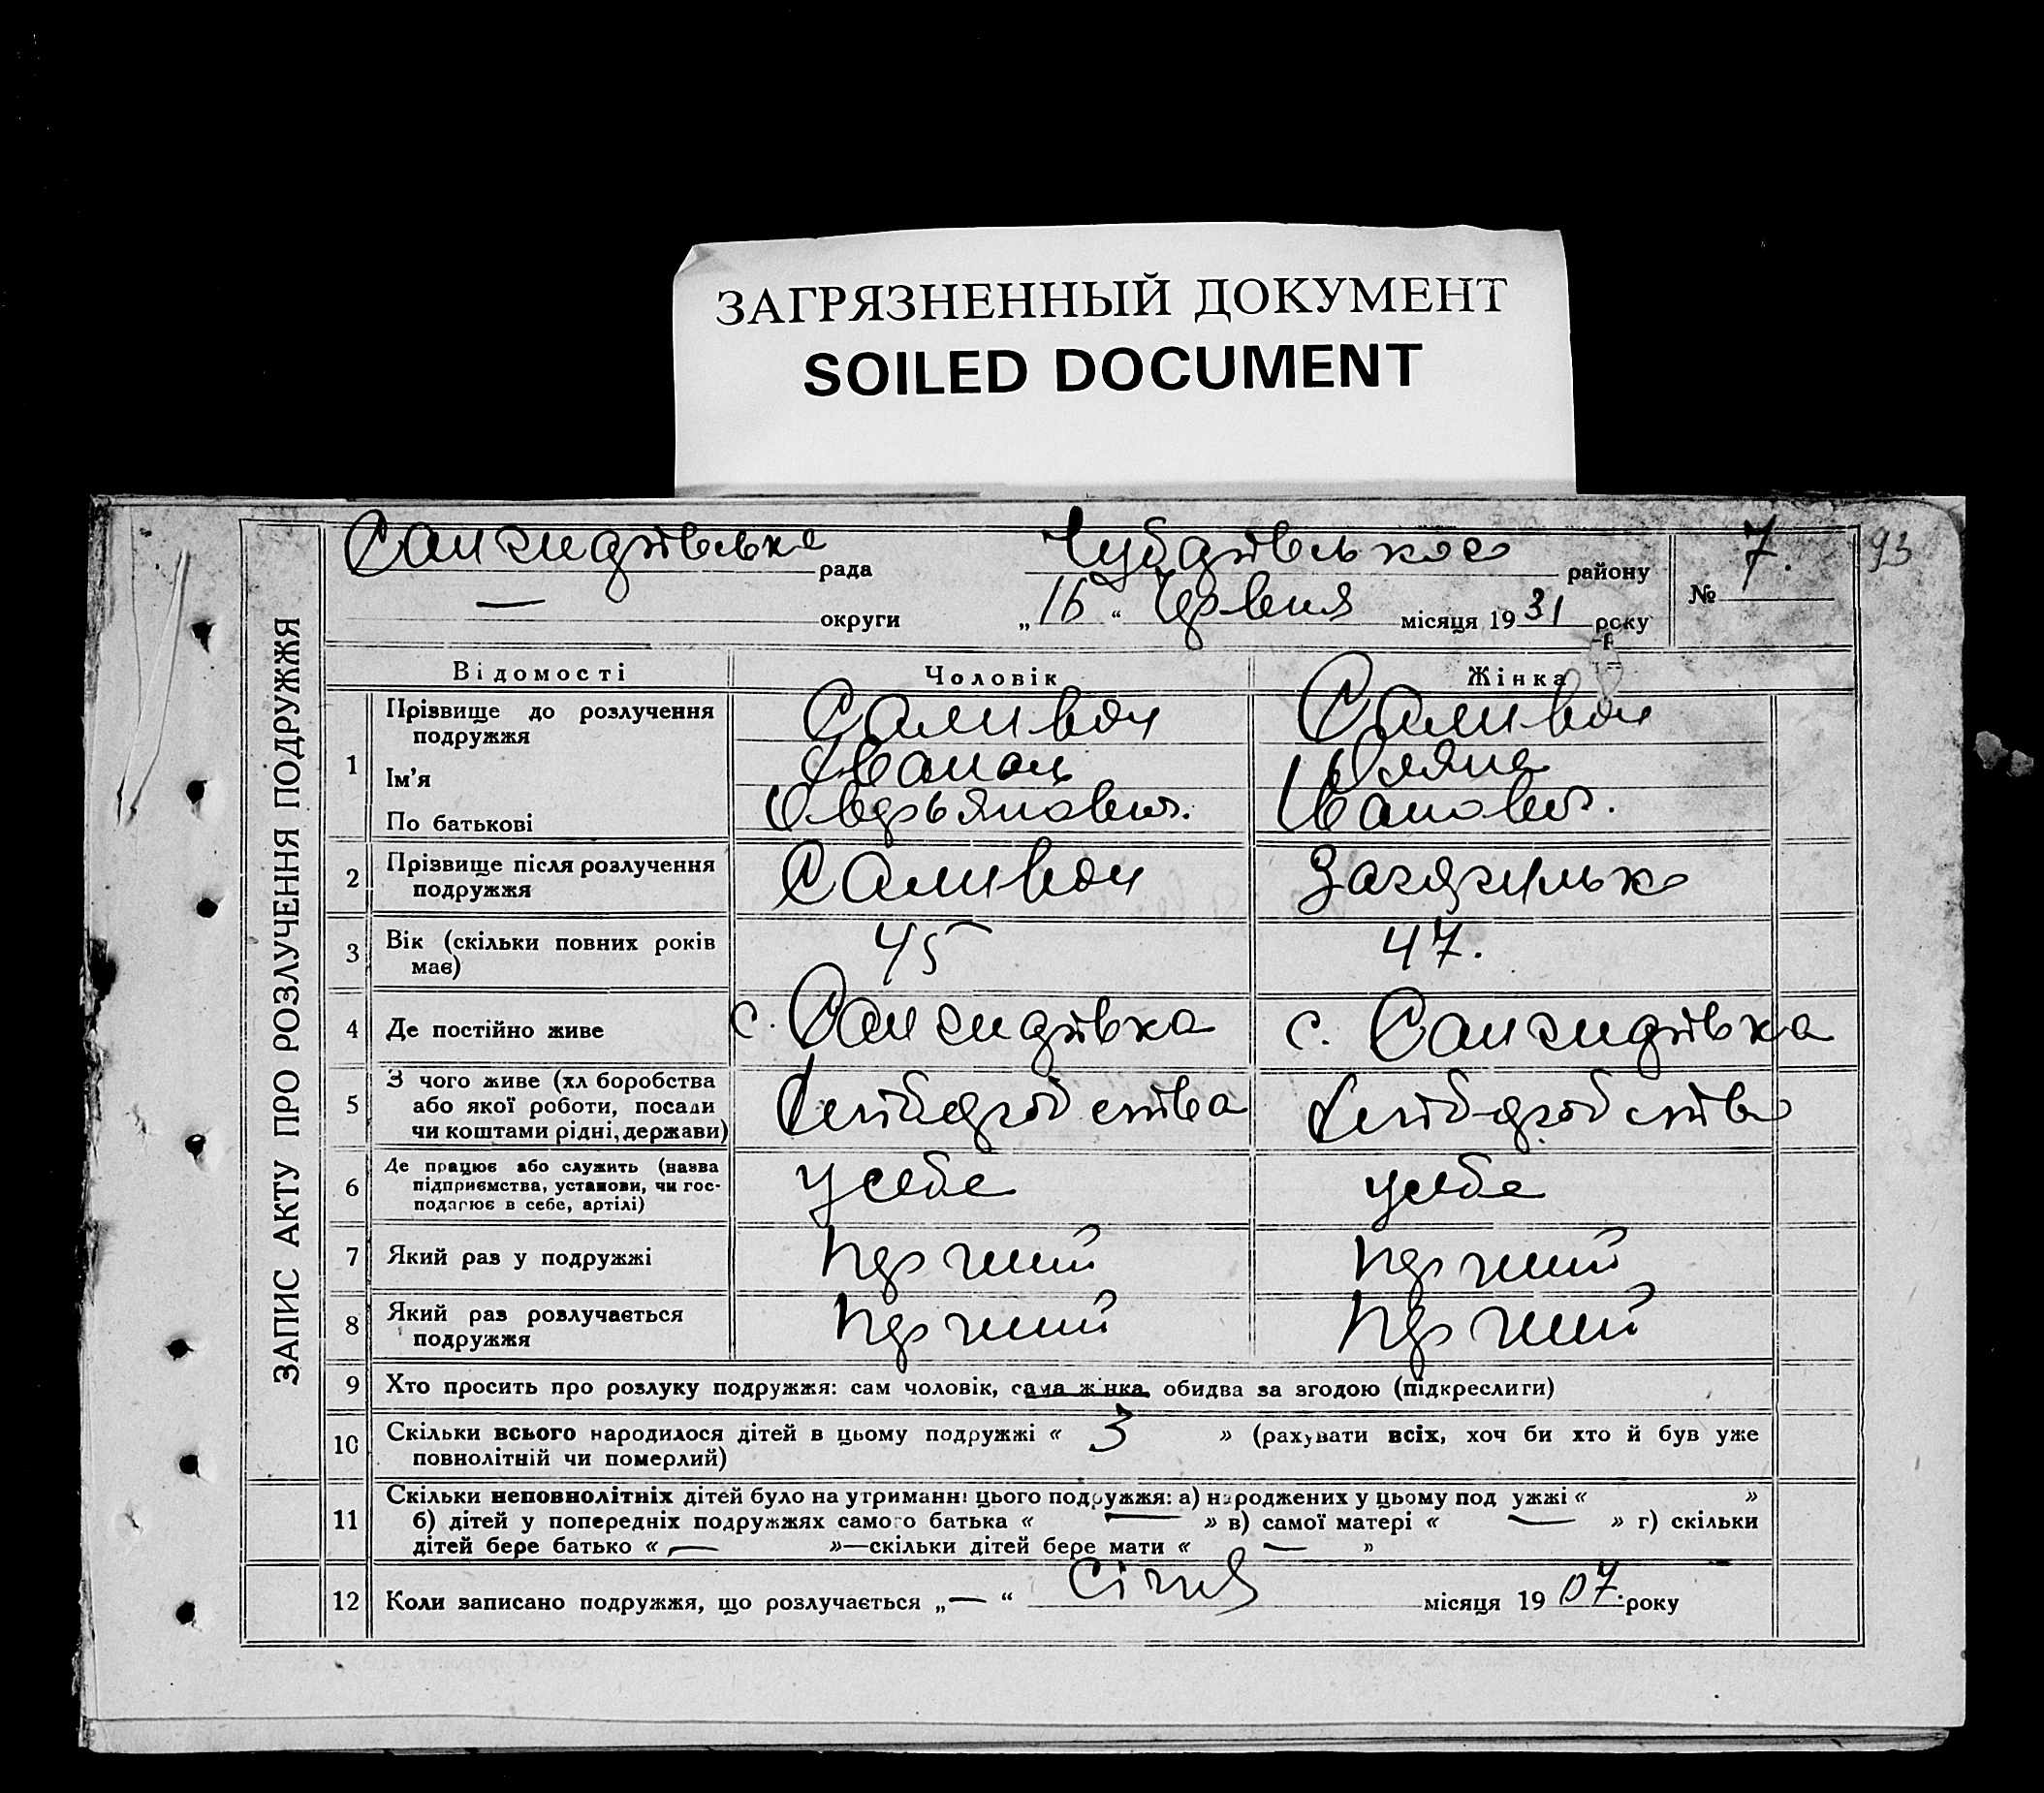 ЗАГРЯЗНЕННЫЙ ДОКУМЕНТ
SOILED DOCUMENT
93
ЗАПИС АКТУ ПРО РОЗЛУЧЕННЯ ПОДРУЖЖЯ
рада Чубарівського району № 7.
— округи „16“ Червня місяця 1931 року
Відомості Чоловік Жінка
1 Прізвище до розлучення подружжя Саливон Саливон
Ім'я Уляна
По батькові
2 Прізвище після розлучення подружжя Саливон
3 Вік (скільки повних років має) 45 47.
4 Де постійно живе с. с.
5 З чого живе (хліборобства або якої роботи, посади чи коштами рідні, держави) Хліборобства Хліборобства
6 Де працює або служить (назва підприємства, установи, чи господарює в себе, артілі) у себе у себе
7 Який раз у подружжі перший перший
8 Який раз розлучається подружжя перший перший
9 Хто просить про розлуку подружжя: сам чоловік, сама жінка, обидва за згодою (підкреслити)
10 Скільки всього народилося дітей в цьому подружжі « 3 » (рахувати всіх, хоч би хто й був уже
повнолітній чи померлий)
11 Скільки неповнолітніх дітей було на утриманні цього подружжя: а) народжених у цьому подружжі « »
б) дітей у попередніх подружжях самого батька « — » в) самої матері « — » г) скільки
дітей бере батько « — »—скільки дітей бере мати « — »
12 Коли записано подружжя, що розлучається „—“ Січня місяця 1907. року